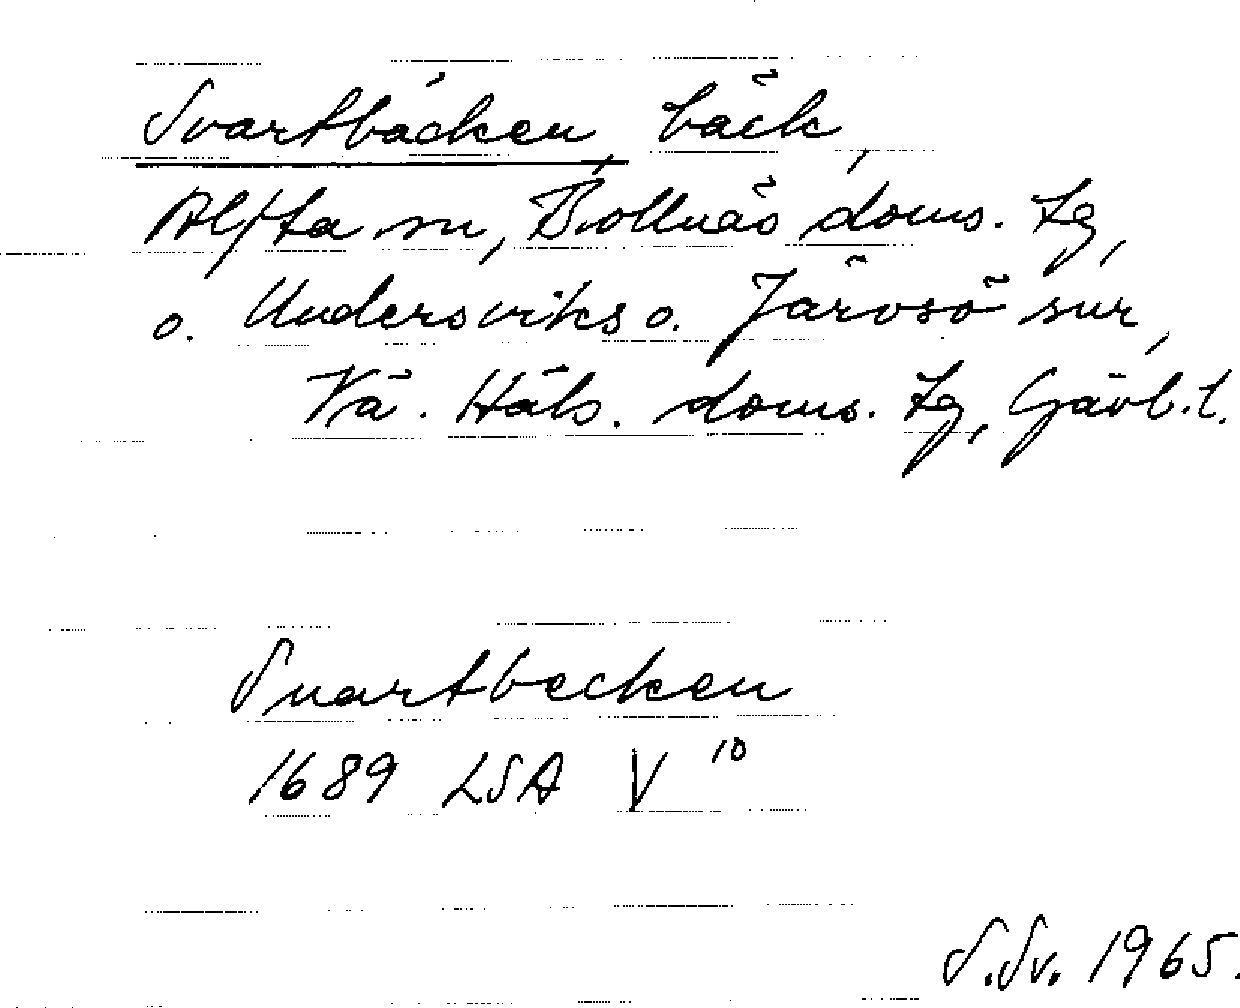 Svartbäcken, bäck,
Alfta sn, Bollnäs doms. tg,
o. Undersviks o. Järvsö snr,
Vä. Häls. doms. tg, Gävl.l.
Suartbecken
1689 LSA V 10
S.Sv. 1965.